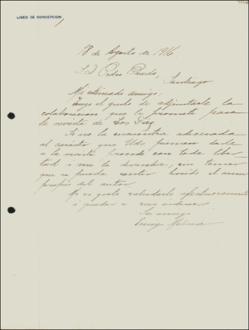 LICEO DE CONCEPCION
18 de Agosto de 1916
S. D. Pedro Prado,
Santiago
Mi estimado amigo:
Tengo el gusto de adjuntarle la
colaboracion que le prometí para
la revista de Los Diez.
Si no la encuentra adecuada
al carácter que Uds. piensan darle
a la revista, proceda con toda liber-
tad i no la inserte, sin temor
que se pueda sentir herido el amor
propio del autor.
Me es grato saludarle afectuosamente
i quedar a sus órdenes
Su amigo
Enrique Molina